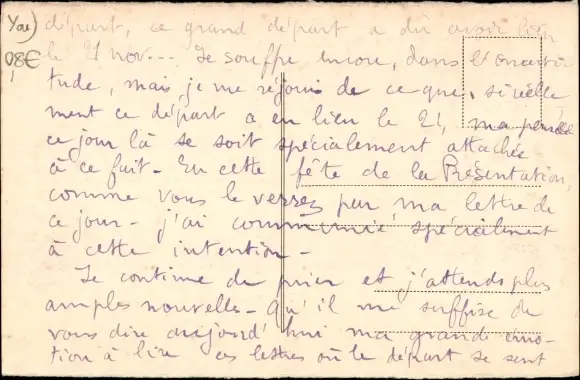 Yov
08€
départ, ce grand départ a dû avoir lieu
le 21 nov... Je souffre encore, dans l'incerti-
tude, mais je me réjouis de ce que, si réelle
ment ce départ a eu lieu le 21, ma pensée
ce jour là se soit spécialement attachée
à ce fait - En cette fête de la Présentation,
comme vous le verrez par ma lettre de
ce jour - j'ai communié spécialement
à cette intention -
Je continue de prier et j'attends plus
amples nouvelles - Qu'il me suffise de
vous dire aujourd'hui ma grande émo-
tion à lire ces lettres où le départ se sent